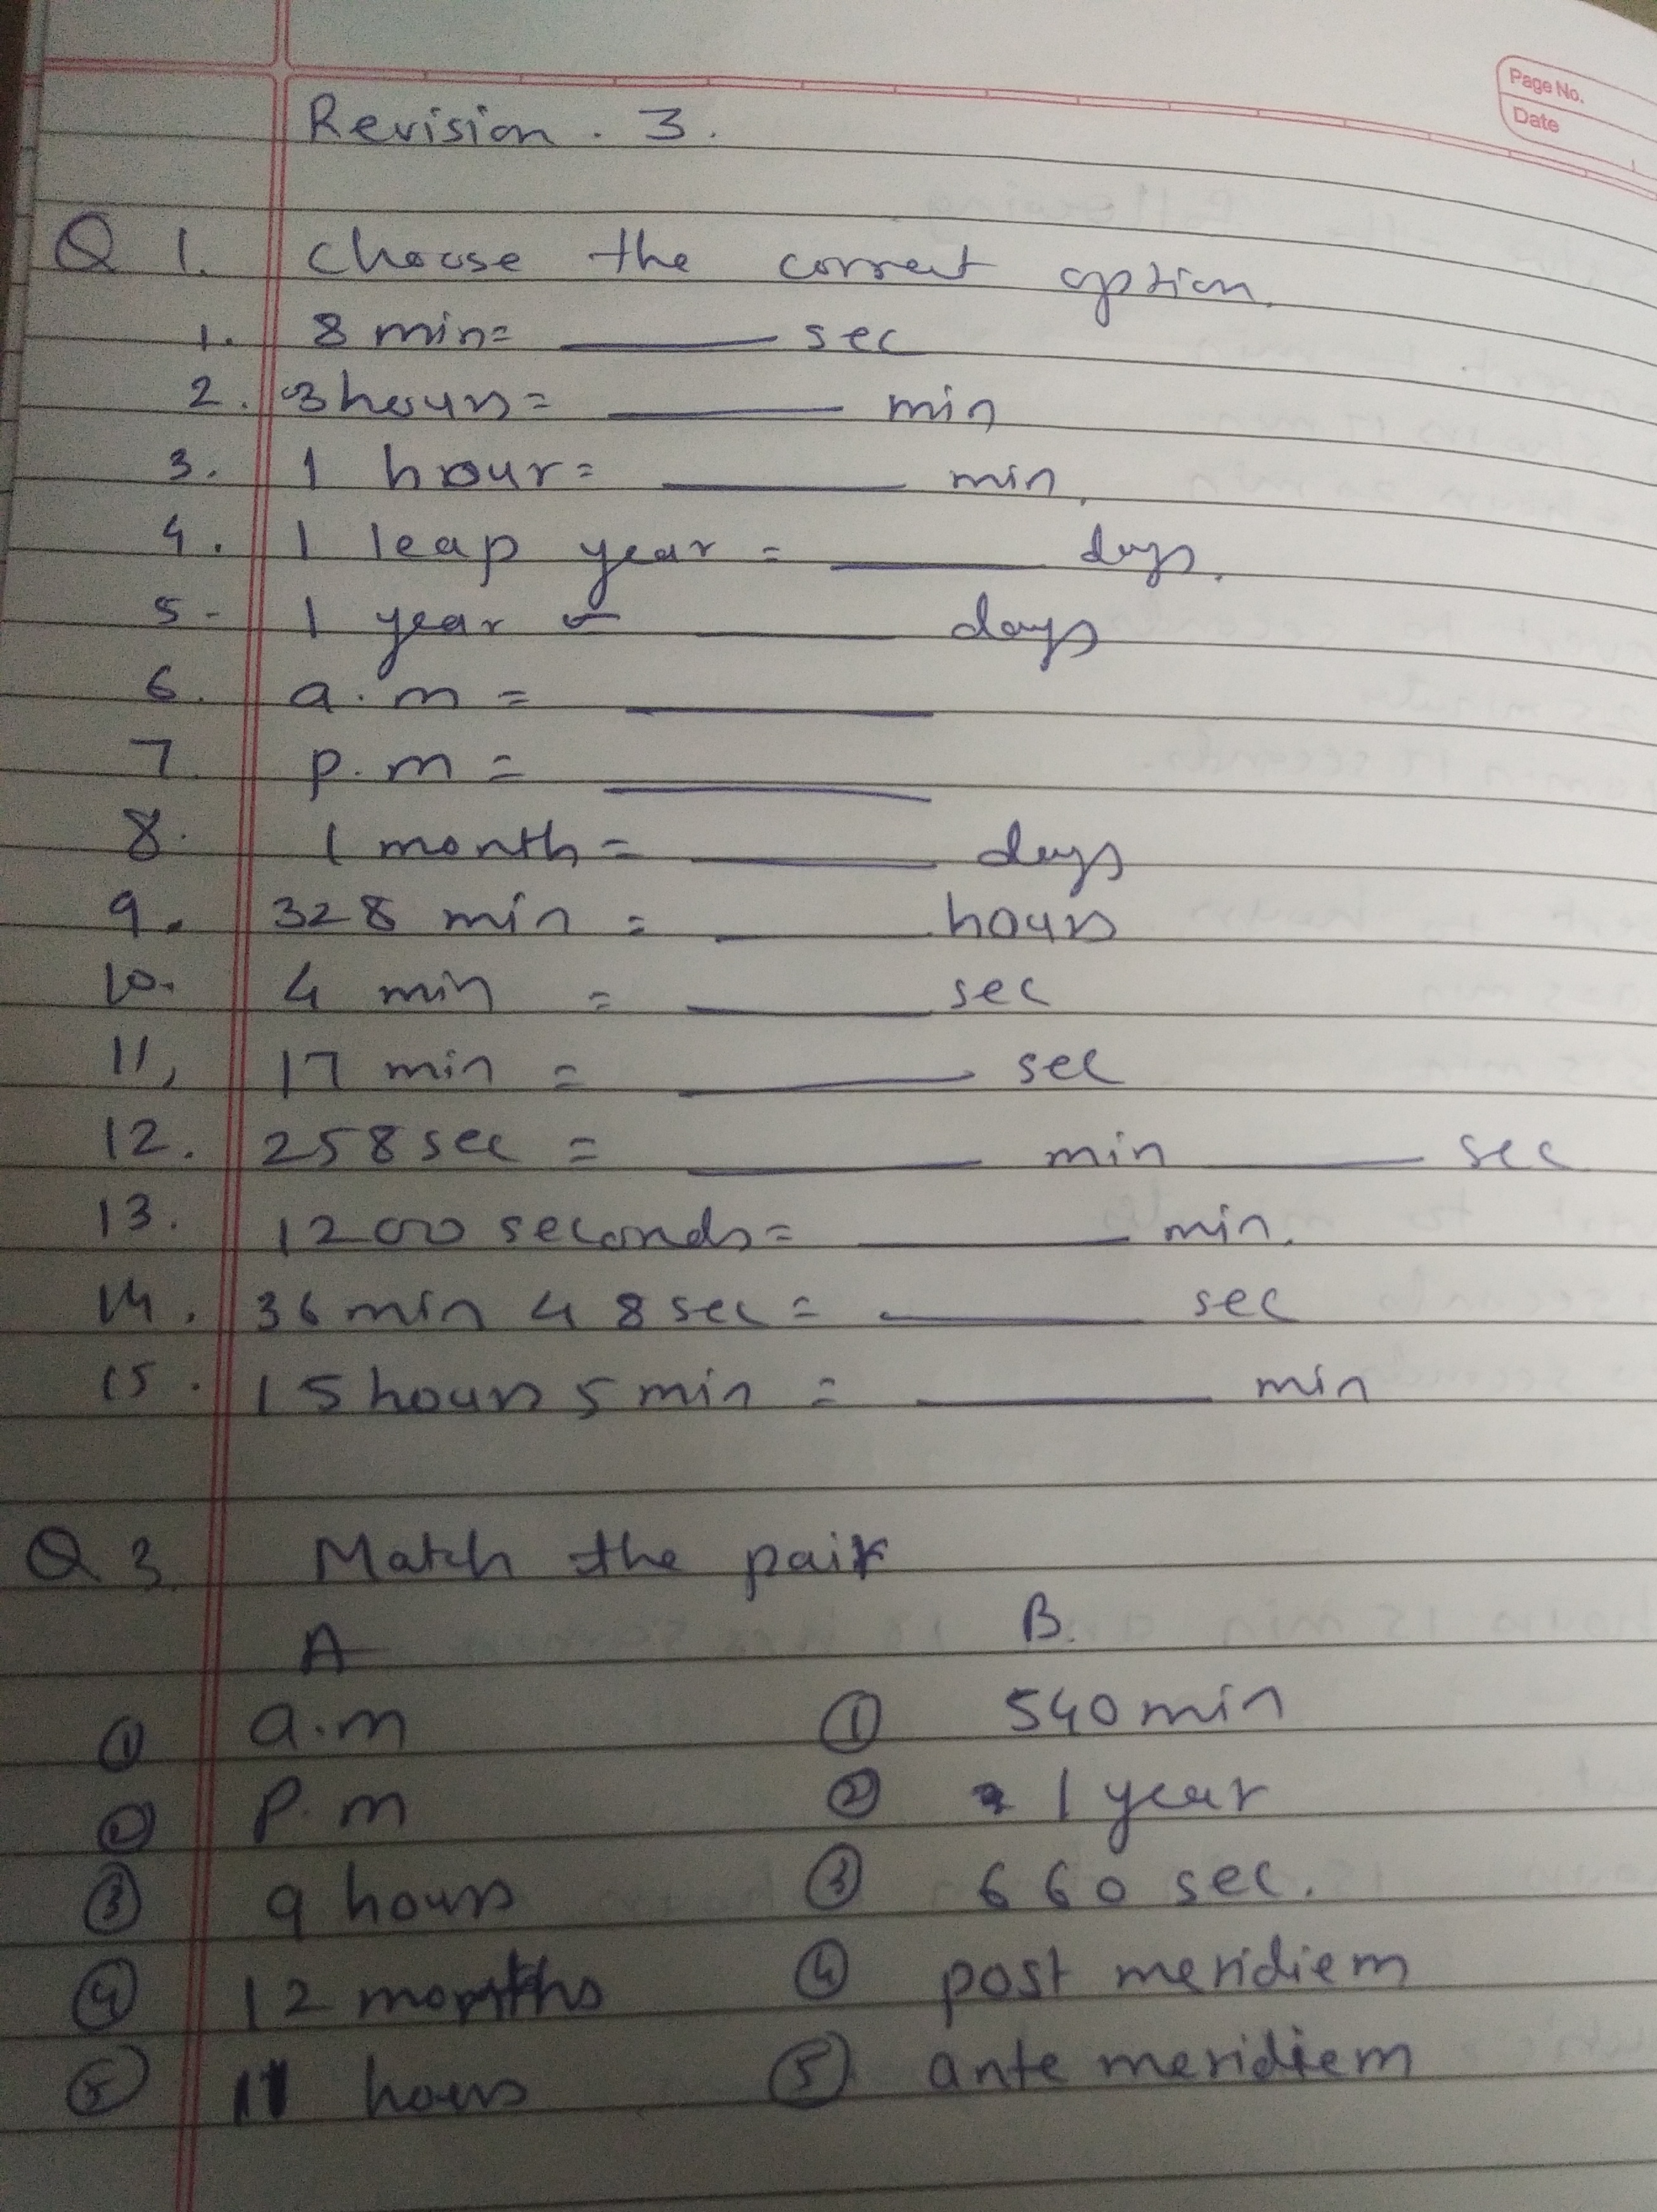 Page No.
Date
Revision . 3.
Q 1. Choose the correct option.
1. 8 min= ______ sec
2. 3 hours= ______ min
3. 1 hour= ______ min.
4. 1 leap year = ______ days.
5- 1 year = ______ days
6. a.m = ______
7. p.m = ______
8. 1 month = ______ days
9. 328 min = ______ hours
10. 4 min = ______ sec
11, 17 min = ______ sec
12. 258 sec = ______ min ______ sec
13. 1200 seconds= ______ min.
14. 36 min 48 sec = ______ sec
15. 15 hours 5 min = ______ min
Q 3. Match the pair
A B.
① a.m ① 540 min
② p.m ② 1 year
③ 9 hours ③ 660 sec.
④ 12 months ④ post meridiem
⑤ 11 hours ⑤ ante meridiem